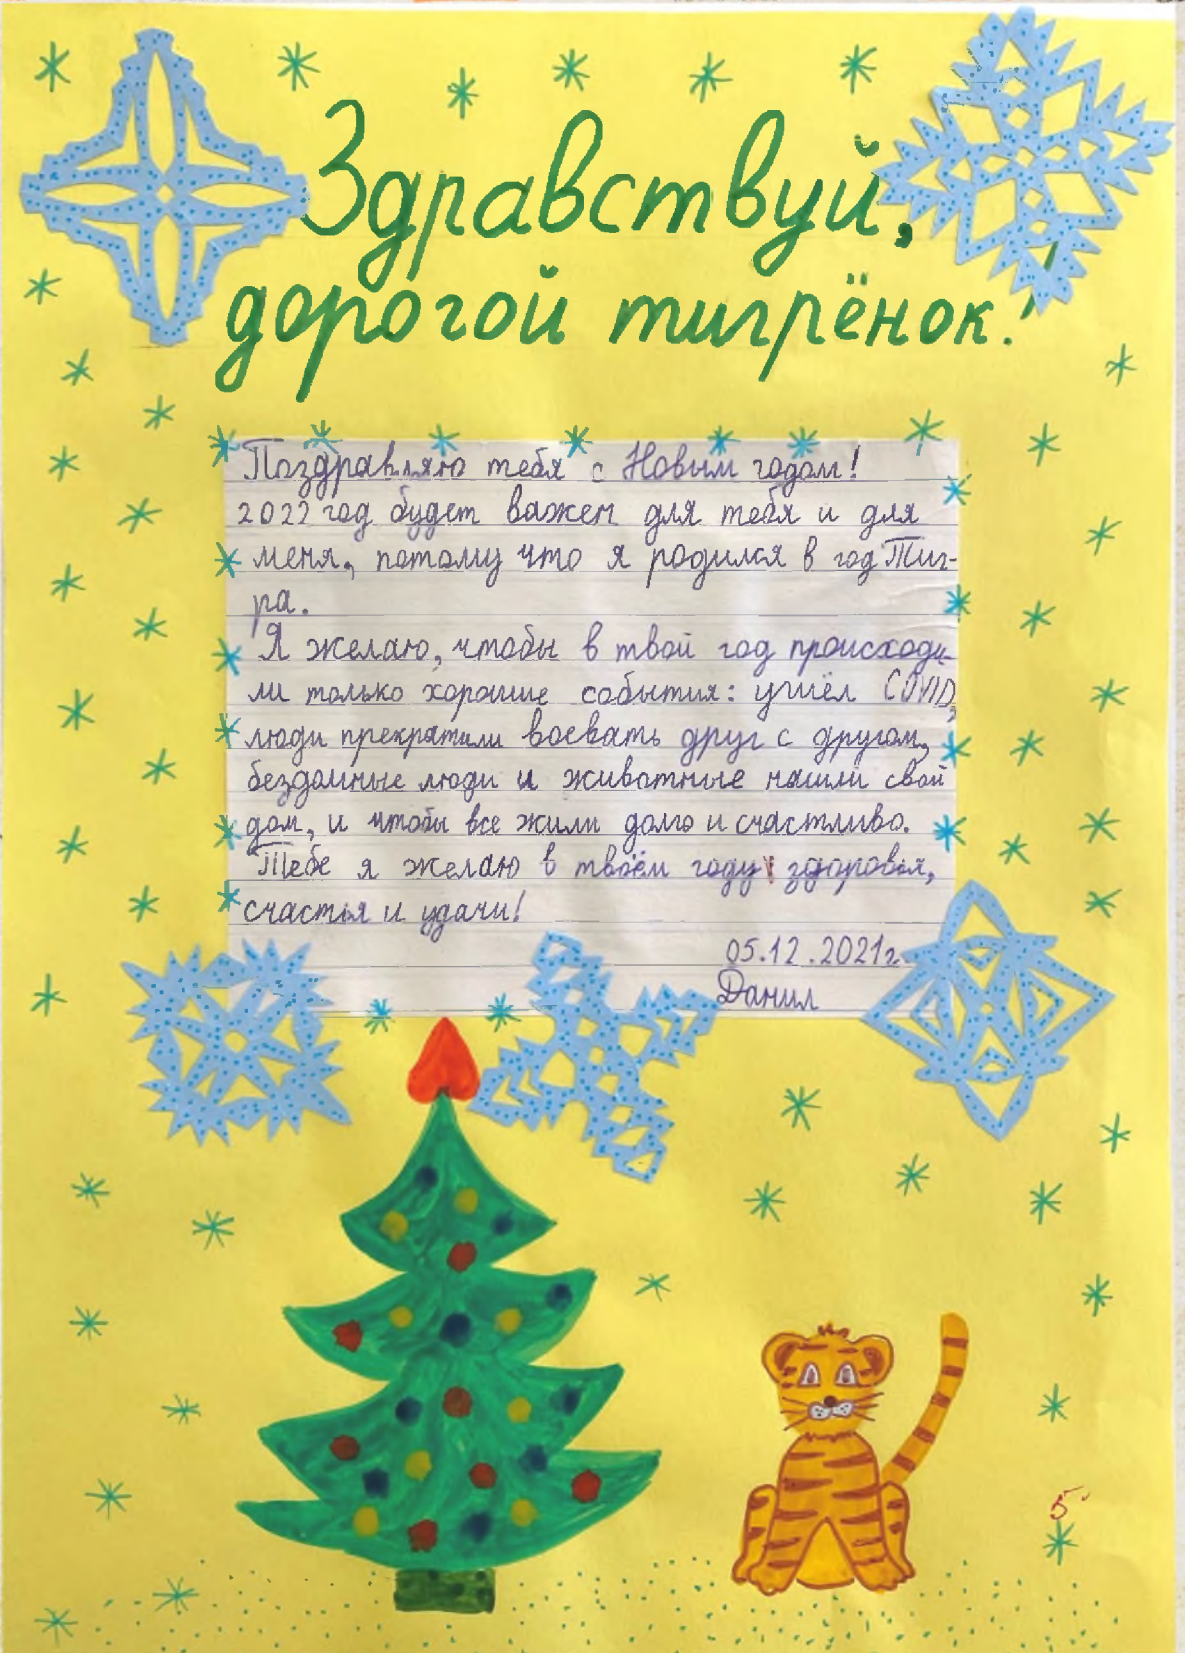 Здравствуй,
дорогой тигрёнок!
Поздравляю тебя с Новым годом!
2022 год будет важен для тебя и для
меня, потому что я родился в год Тиг-
ра.
Я желаю, чтобы в твой год происходи-
ли только хорошие события: ушёл COVID,
люди прекратили воевать друг с другом,
бездомные люди и животные нашли свой
дом, и чтобы все жили долго и счастливо.
Тебе я желаю в твоём году здоровья,
счастья и удачи!
05.12.2021г.
Данил
5